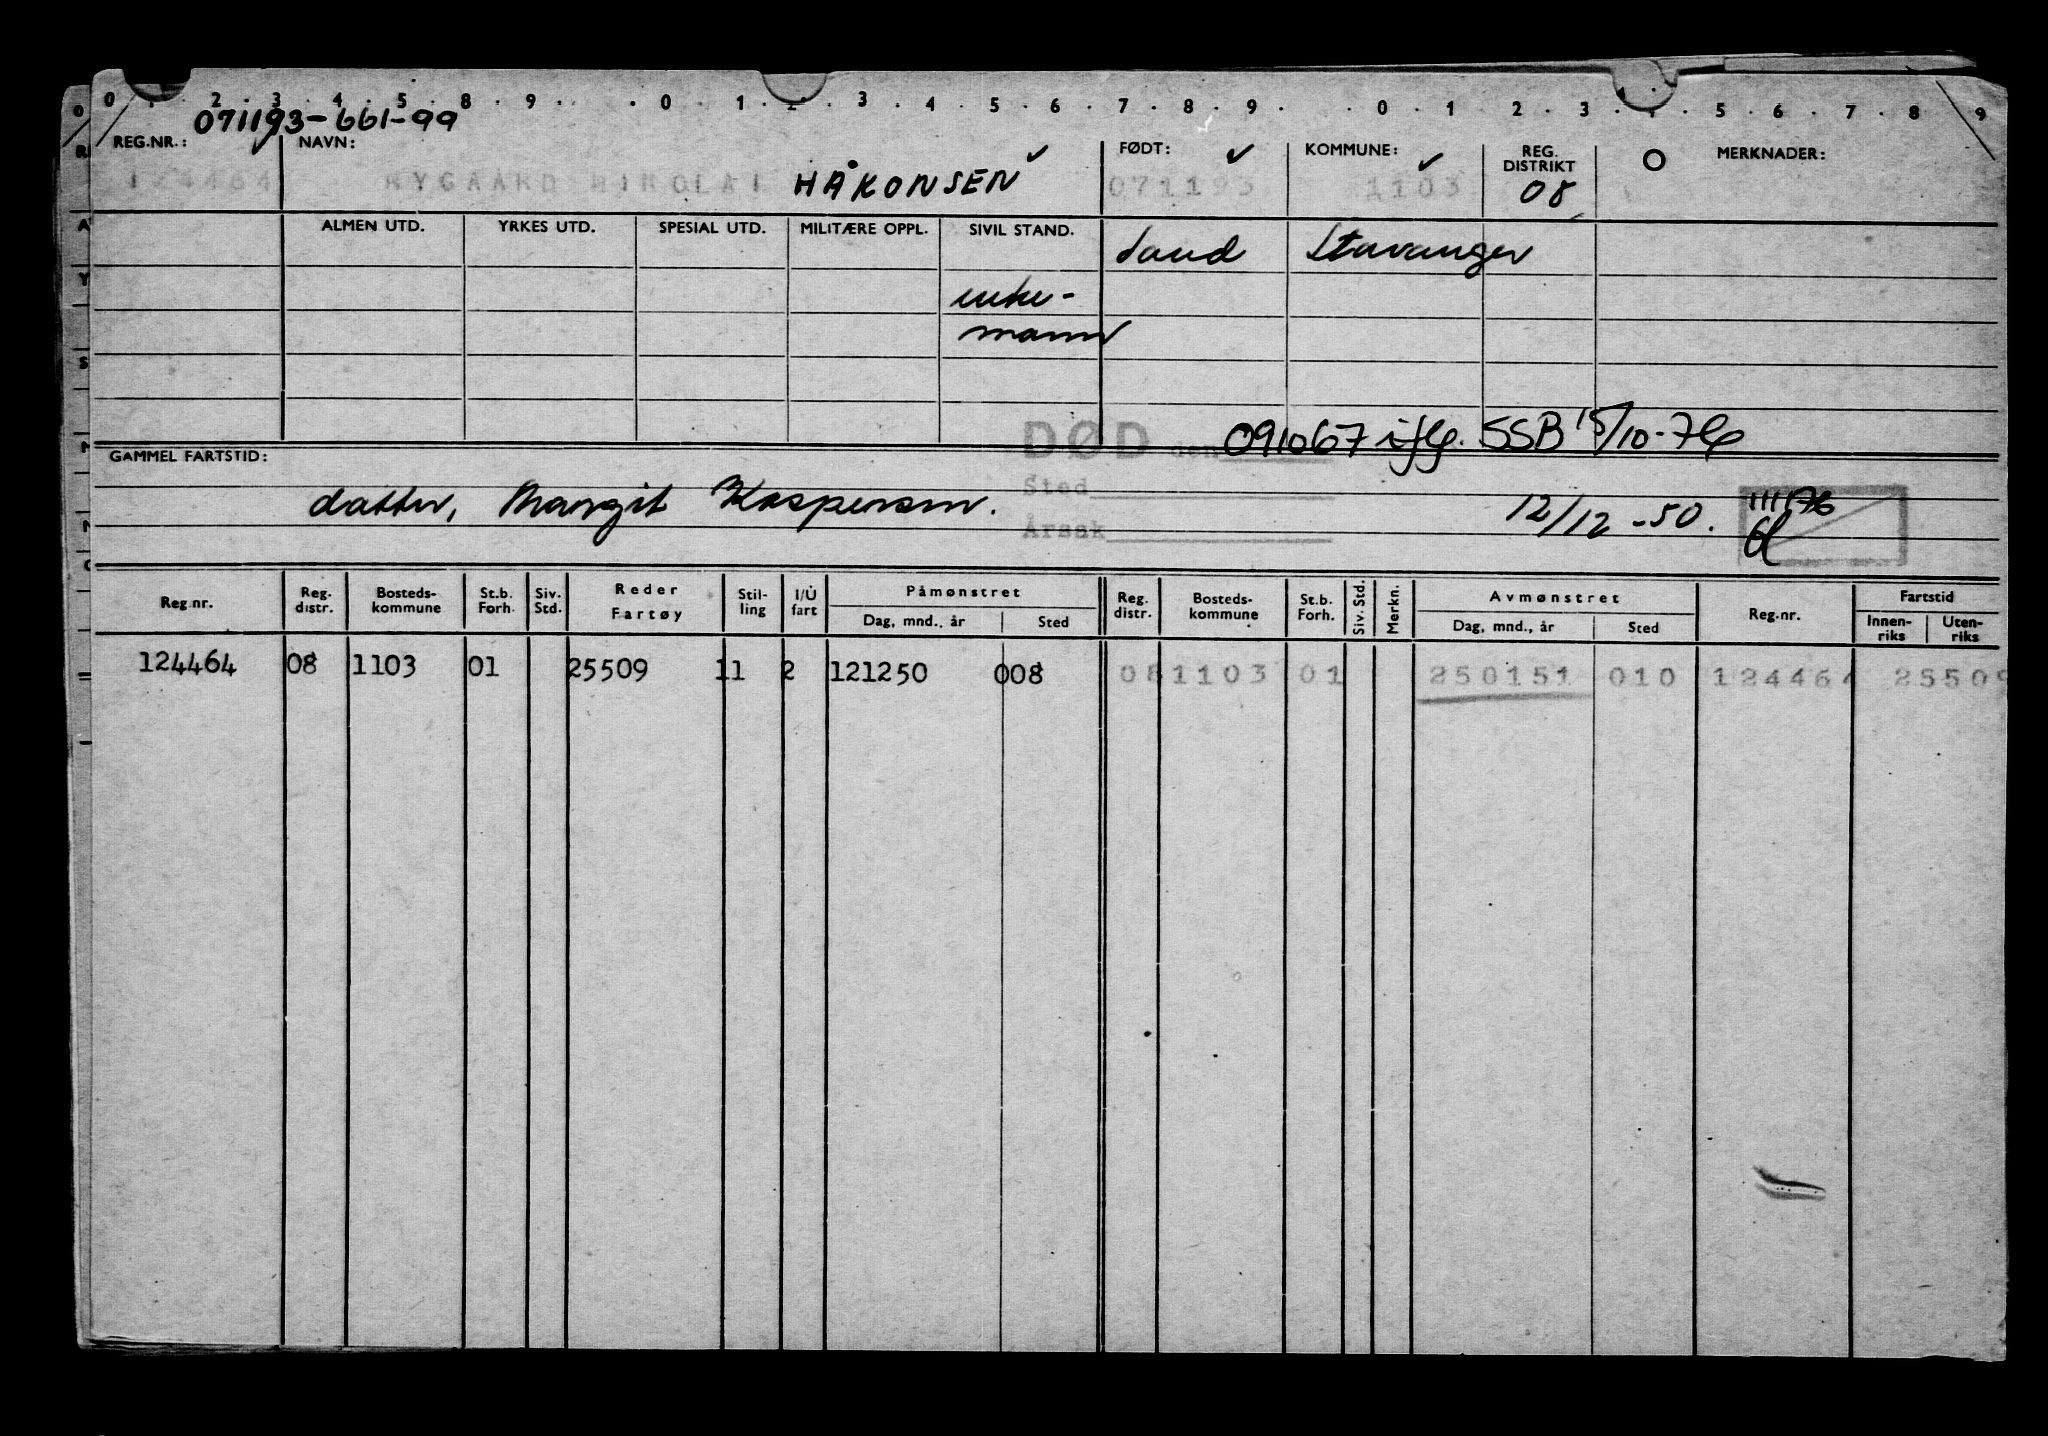 0 1 2 3 4 5 8 9 0 1 2 3 4 5 6 7 8 9 0 1 2 3 4 5 6 7 8 9
071193-661-99
REG.NR.: NAVN: FØDT: KOMMUNE: REG. DISTRIKT MERKNADER:
124464 RYGAARD NIKOLAI HÅKONSEN 071193 1103 08
ALMEN UTD. YRKES UTD. SPESIAL UTD. MILITÆRE OPPL. SIVIL STAND. Sand Stavanger
enke-
mann
DØD den 091067 iflg. SSB 15/10-76
GAMMEL FARTSTID:
Sted
datter, Margit Kaspersen. 12/12-50.
Årsak
Reg.nr. Reg. distr. Bosteds-kommune St.b. Forh. Siv. Std. Reder Fartøy Stil-ling I/U fart Påmønstret Dag, mnd., år Sted Reg. distr. Bosteds-kommune St.b. Forh. Siv. Std. Merkn. Avmønstret Dag, mnd., år Sted Reg.nr. Fartstid Innen-riks Uten-riks
124464 08 1103 01 25509 11 2 121250 008 08 1103 01 250151 010 124464 25509